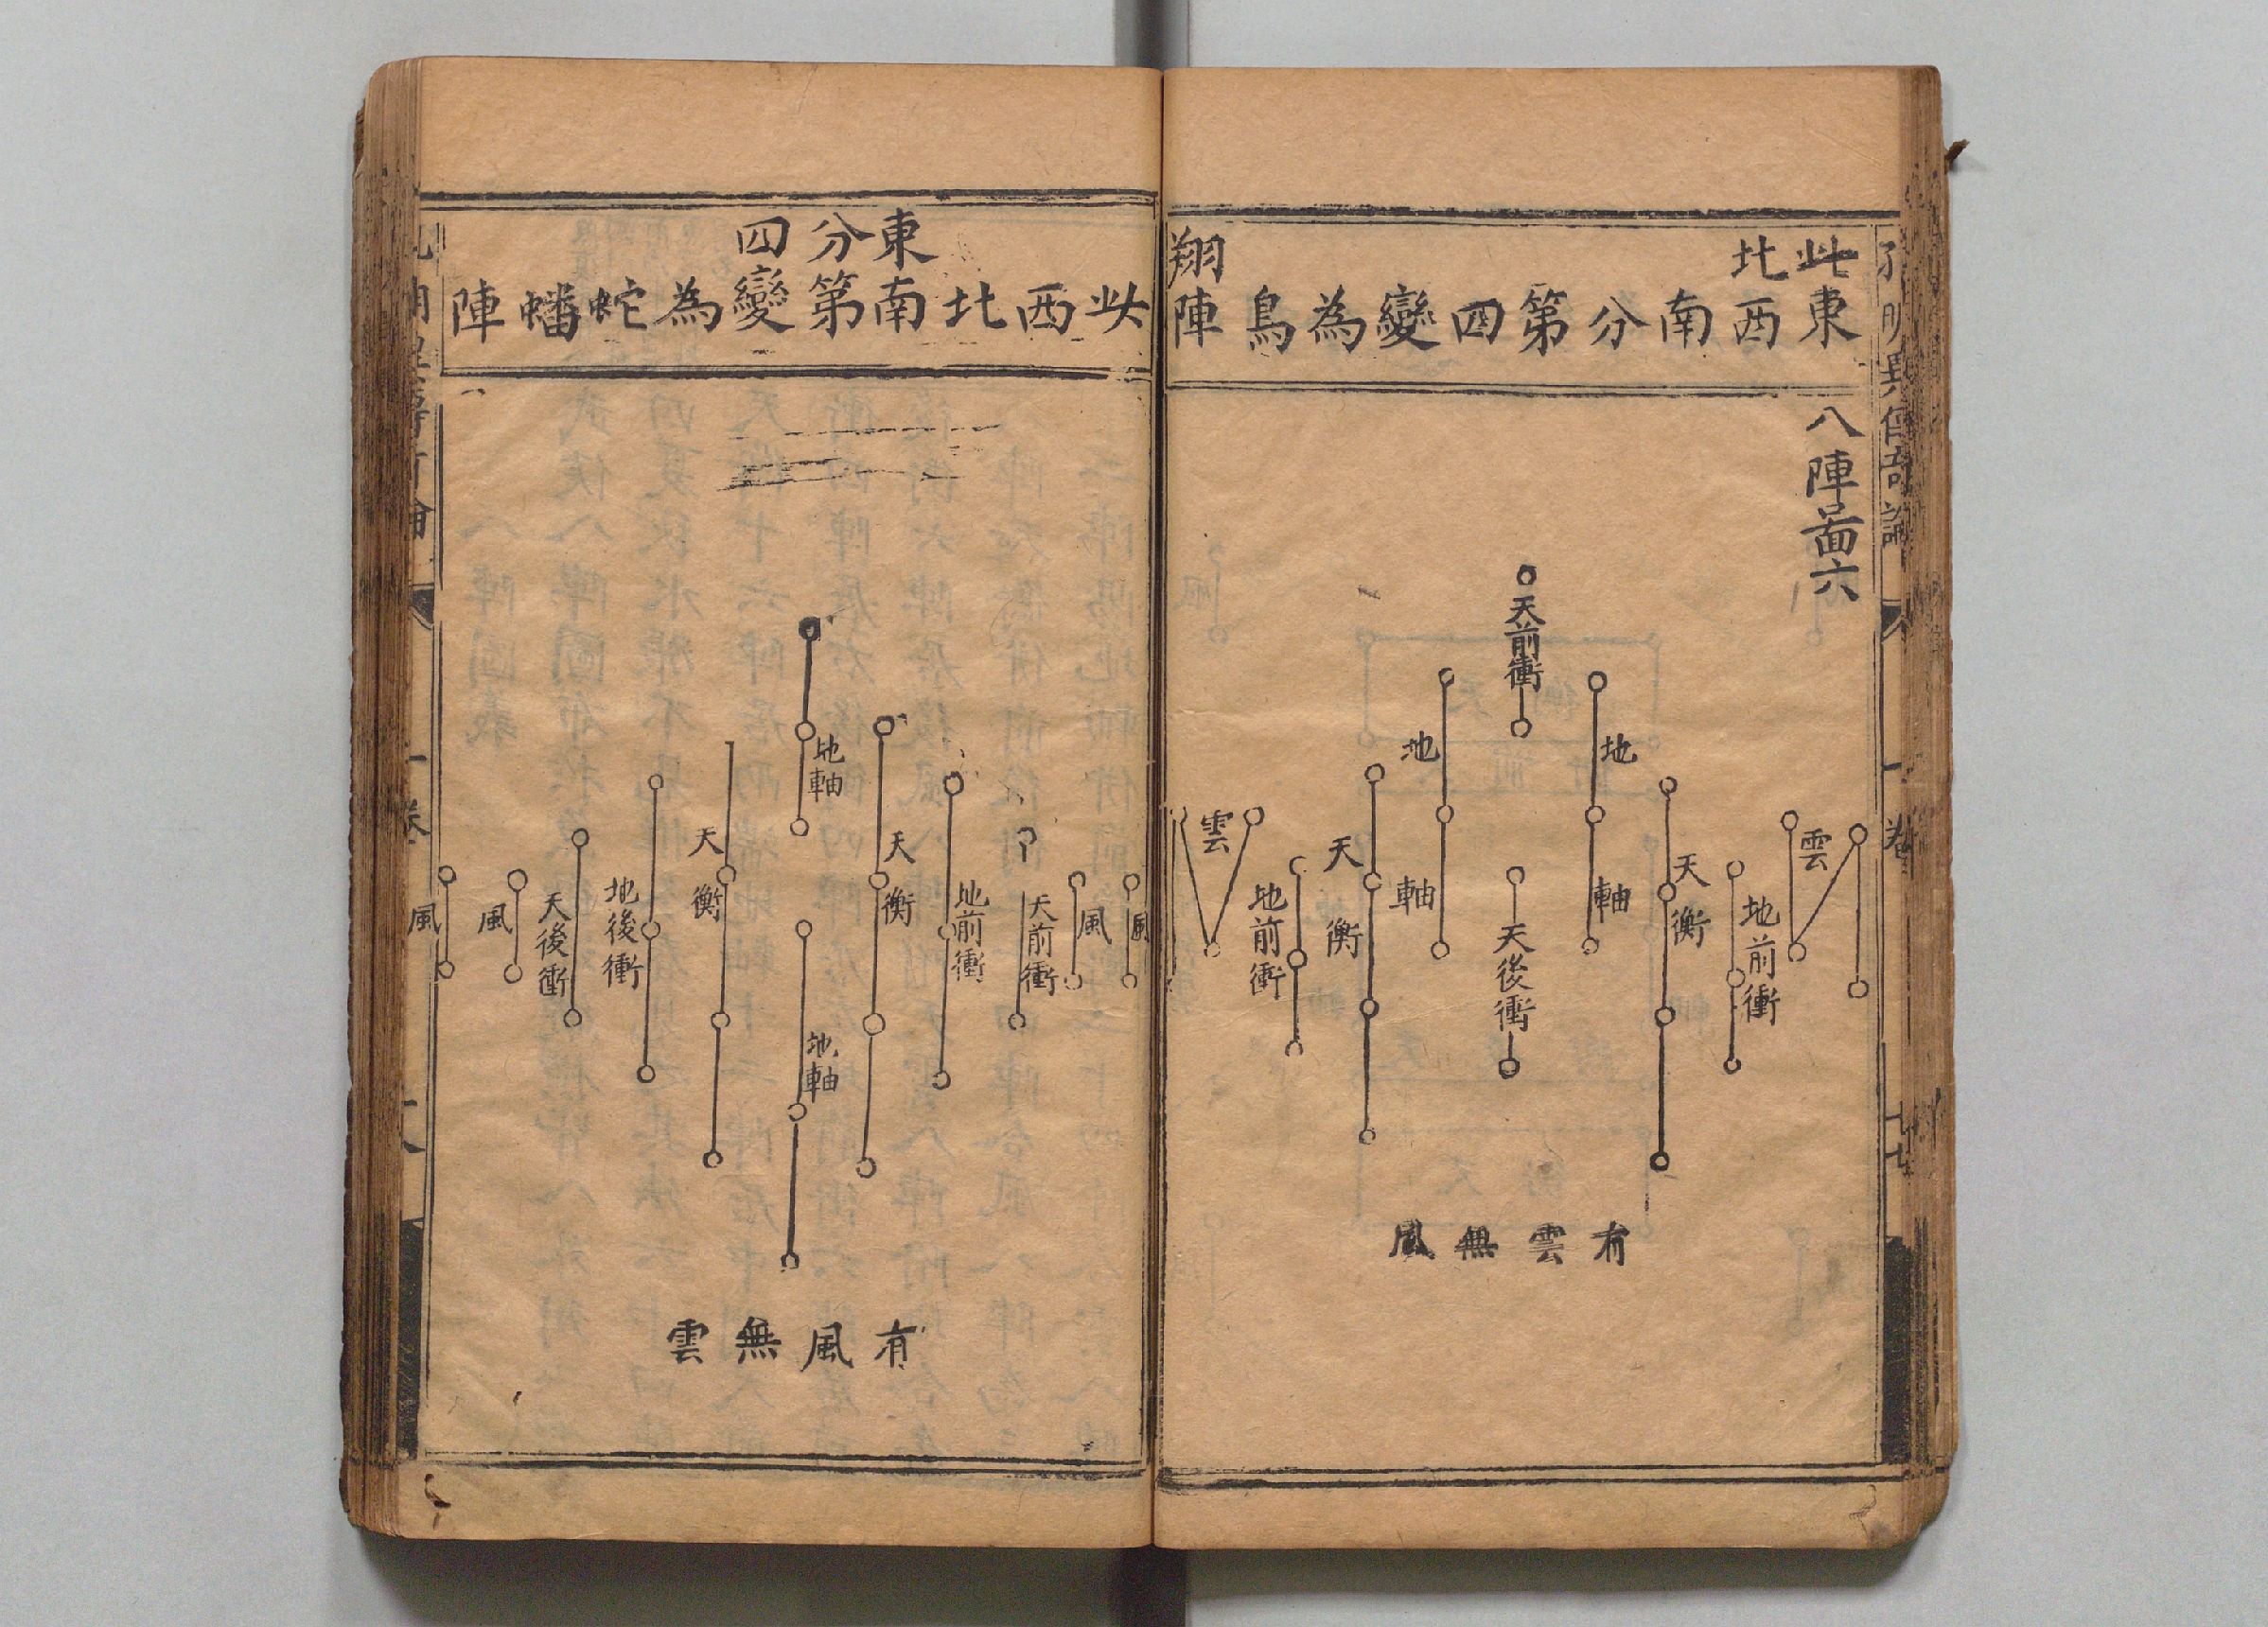 孔明異傳奇論
一卷
十七
此東北西南分第四變為鳥翔陣
八陣啚六
天前衝
地軸
地軸
天後衝
雲
地前衝
天衡
天衡
地前衝
雲
有雲無風
此西北東南分第四變為蛇蟠陣
風
風
天前衝
地前衝
天衡
地軸
地軸
天衡
地後衝
天後衝
風
風
有風無雲